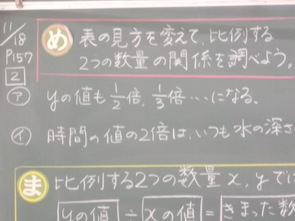 11/18
P157
2
め 表の見方を変えて、比例する
2つの数量の関係を調べよう。
ア yの値も1/2倍、1/3倍…になる。
イ 時間の値の2倍は、いつも水の深さ
ま 比例する2つの数量x、yでは
yの値 ÷ xの値 = きまった数